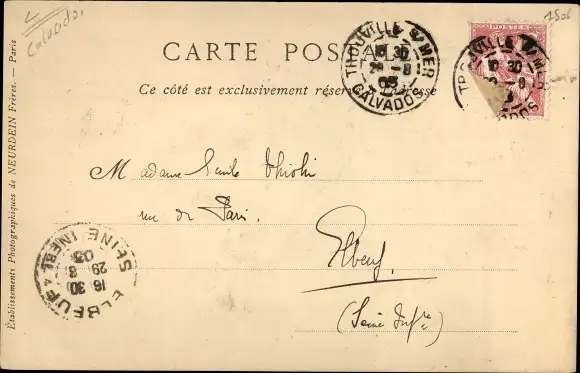 Calvados.
7506
CARTE POSTALE
Ce côté est exclusivement réservé à l'adresse
TROUVILLE S/MER
29 - 8
03
CALVADOS
POSTES
TROUVILLE S/MER
10 30
Établissements Photographiques de NEURDEIN Frères. — Paris
Madame Emile
rue de Paris.
Elbeuf
(Seine Infre)
ELBEUF
SEINE INFRE
16 30
29 8
03